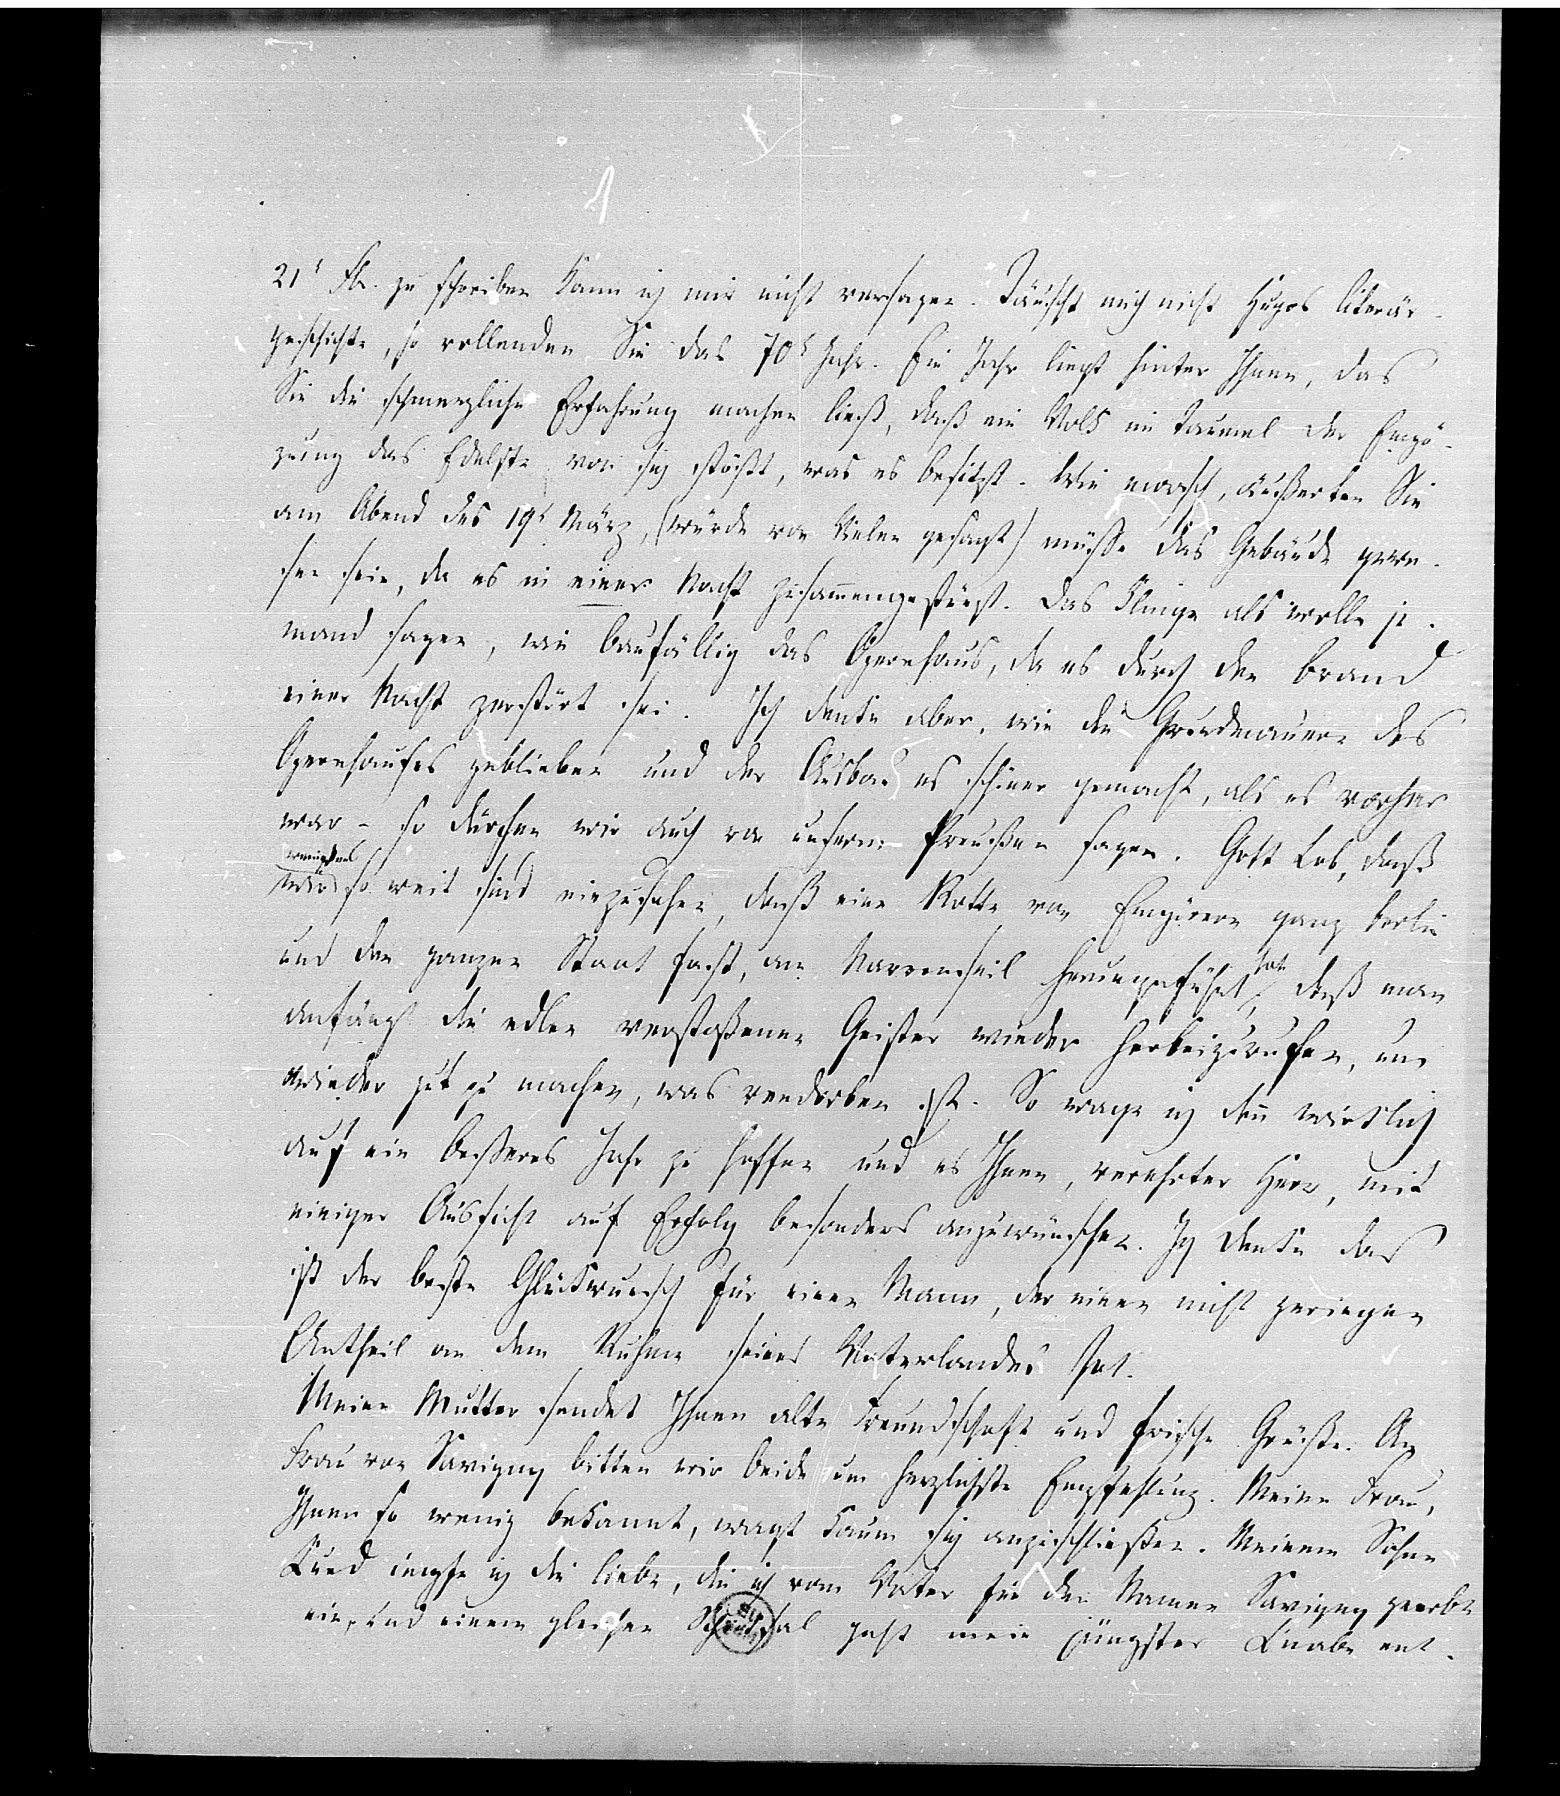 21t Fbr. zu schreiben kann ich mir nicht versagen. Täuscht mich nicht Hugos literär-
geschichte, so vollenden Sie das 70t Jahr. Ein Jahr liegt hinter Ihnen, das
Sie die schmerzliche Erfahrung machen ließ, daß ein Volk im Taumel der Empö-
rung das Edelste von sich stößt, was es besitzt. Wie morsch, äußerten Sie
am Abend des 19t März, (wurde von Vielen gesagt) müsse das Gebäude gewe-
sen sein, da es in einer Nacht zusammengestürzt. Das klinge als wolle je-
mand sagen, wie baufällig das Opernhaus, da es durch den Brand
einer Nacht zerstört sei. Ich denke aber, wie die Grundmauern des
Opernhauses geblieben und der Ausbau es schöner gemacht, als es vorher
war – so dürfen wir auch von unserm Preußen sagen. Gott Lob, daß
wir wenigstens so weit sind einzusehen, daß eine Rotte von Empörern ganz Berlin
und den ganzen Staat fast, am Narrenseil herumgeführt hat, daß man
anfängt die edlen verstoßenen Geister wieder herbeizurufen, um
wieder gut zu machen, was verdorben ist. So wage ich denn wirklich
auf ein beßeres Jahr zu hoffen und es Ihnen, verehrter Herr, mit
einiger Aussicht auf Erfolg besonders anzuwünschen. Ich denke das
ist der beste Glückwunsch für einen Mann, der einen nicht geringen
Antheil an dem Ruhme seines Vaterlandes hat.
Meine Mutter sendet Ihnen alte Freundschaft und frische Grüße. An
Frau von Savigny bitten wir beide um herzlichste Empfehlung. Meine Frau,
Ihnen so wenig bekannt, wagt kaum sich anzuschließen. Meinem Sohne
impfe ich die Liebe, die ich vom Vater für den Namen Savigny geerbt
ein, und einem gleichen Schicksal geht mein jüngster Knabe ent-